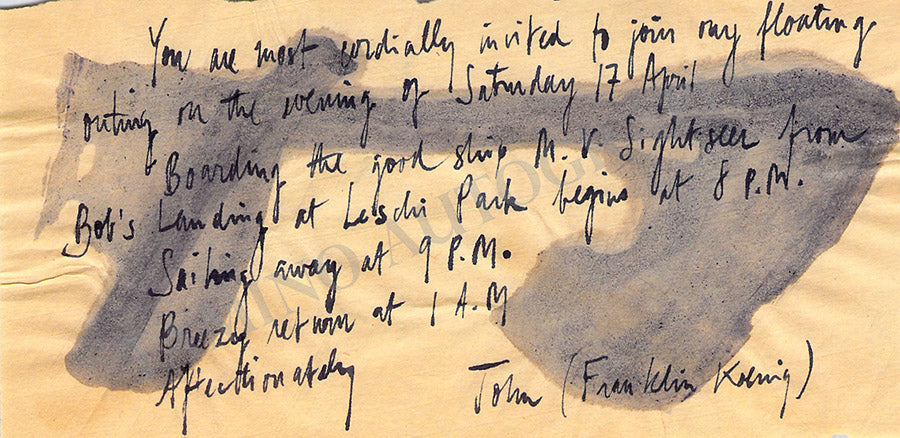 You are most cordially invited to join my floating
outing on the evening of Saturday 17 April
Boarding the good ship M. V. Sightseer from
Bob's Landing at Leschi Park begins at 8 P.M.
Sailing away at 9 P.M.
Breezy return at 1 A.M
Affectionately
John (Franklin Koenig)